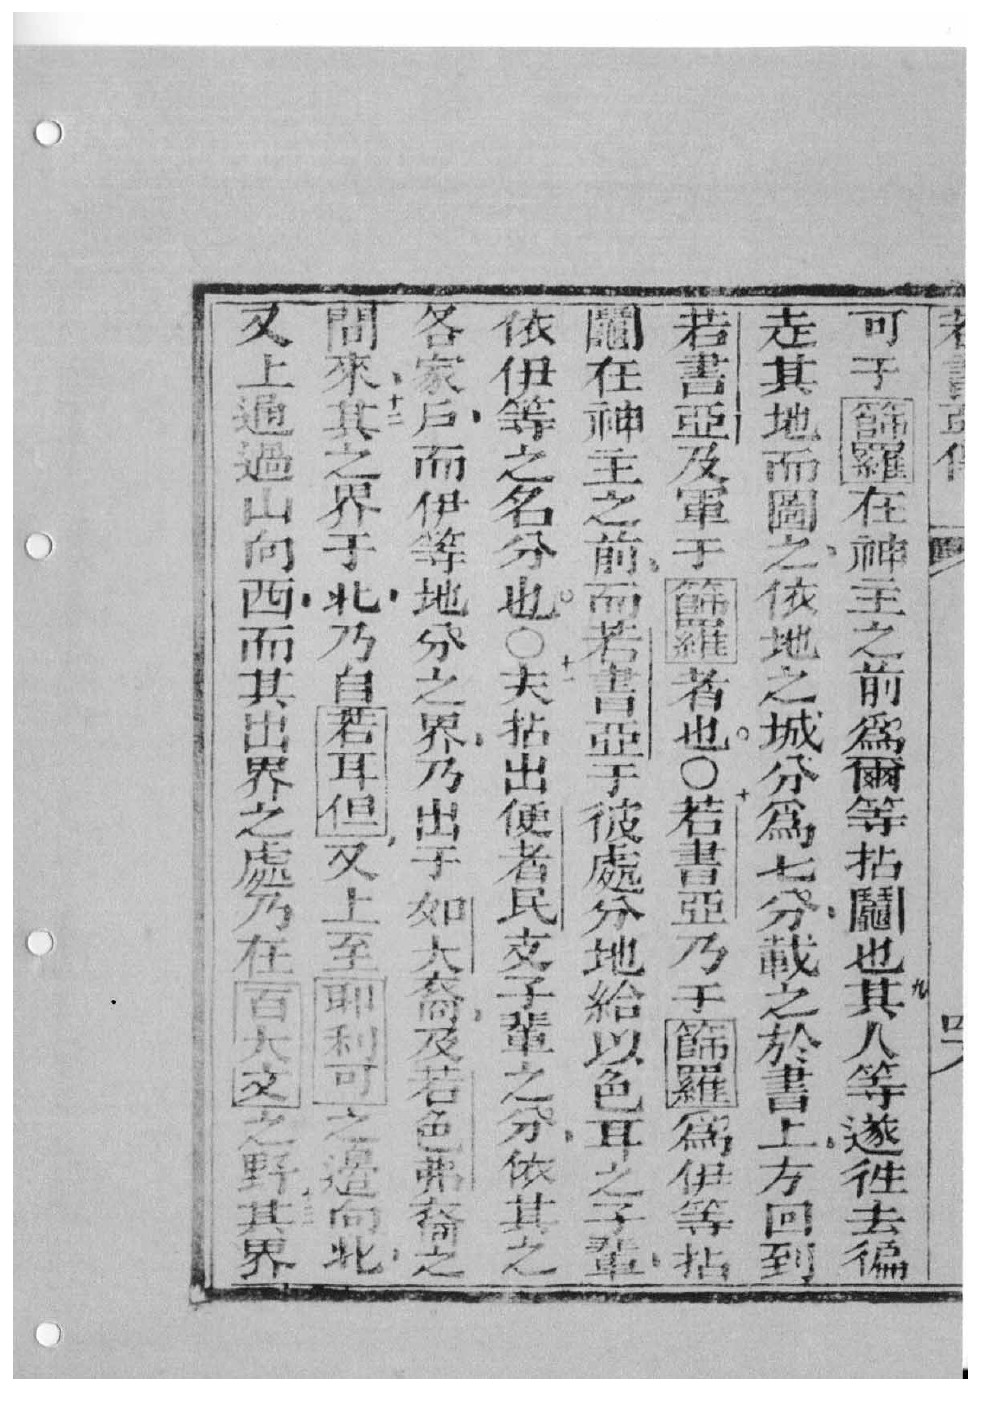 若書亞傳
四
可于篩羅在神主之前爲爾等拈鬮也其九人等遂徃去徧
走其地而圖之依地之城分爲七分載之於書上方回到
若書亞及軍于篩羅者也。〇十若書亞乃于篩羅爲伊等拈
鬮在神主之前而若書亞于彼處分地給以色耳之子輩
依伊等之名分也。〇十一夫拈出便者民文子輩之分依其之
各家戶而伊等地分之界乃出于如大裔及若色弗裔之
間來十二其之界于北乃自若耳但又上至耶利可之邊向北
又上通過山向西而其出界之處乃在百大文之野十三其界